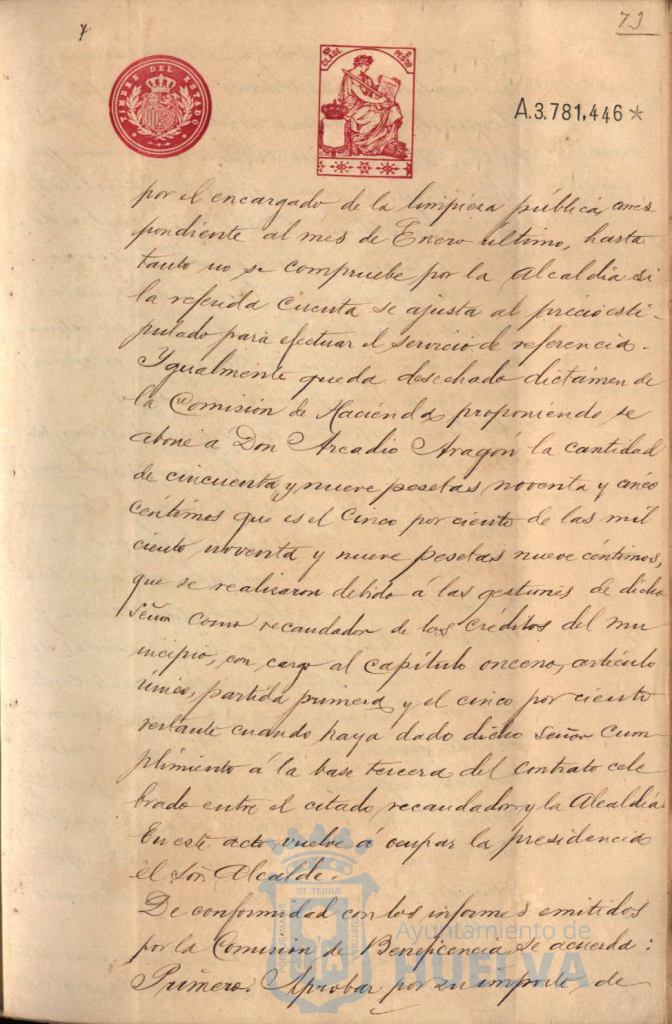 7
73
TIMBRE DEL ESTADO
8ª CLASE 2 PESTAS
A.3.781,446*
por el encargado de la limpieza pública, corres
pondiente al mes de Enero último, hasta
tanto no se compruebe por la Alcaldia si
la referida cuenta se ajusta al precio esti-
pulado para efectuar el servicio de referencia.
Ygualmente queda desechado dictámen de
la Comisión de Hacienda proponiendo se
abone á Don Arcadio Aragón la cantidad
de cincuenta y nueve pesetas noventa y cinco
céntimos que es el cinco por ciento de las mil
ciento noventa y nueve pesetas nueve céntimos,
que se realizaron debido á las gestiones de dicho
Señor como recaudador de los créditos del mu
incipio, con cargo al capítulo onceno, artículo
único, partida primera y el cinco por ciento
restante cuando haya dado dicho Señor cum
plimiento á la base tercera del contrato cele
brado entre el citado recaudador y la Alcaldía.
En este acto vuelve á ocupar la presidencia
el Sõr. Alcalde.
De conformidad con los informes emitidos
por la Comisión de Beneficencia, se acuerda:
Primero. Aprobar por su importe, de
ET TERRÆ
Ayuntamiento de
HUELVA